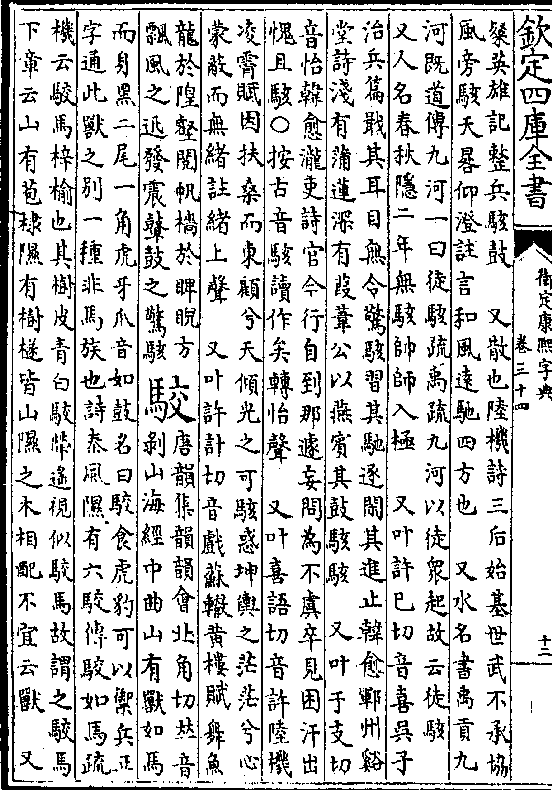 欽定四庫全書
御定康熙字典
卷三十四
十二
粲英雄記整兵駭鼓　又散也陸機詩三后始基世武丕承協
風旁駭天晷仰澄註言和風遠馳四方也　又水名書禹貢九
河既道傳九河一曰徒駭疏禹疏九河以徒衆起故云徒駭
又人名春秋隱二年無駭帥師入極　又叶許已切音喜吳子
治兵篇戢其耳目無令驚駭習其馳逐閑其進止韓愈鄆州谿
堂詩淺有蒲蓮深有葭葦公以燕賓其鼓駭駭　又叶于支切
音怡韓愈瀧吏詩官今行自到那遽妄問為不虞卒見困汗出
愧且駭○按古音駭讀作矣轉怡聲　又叶喜語切音許陸機
凌霄賦因扶桑而東顧兮天傾光之可駭惑坤輿之茫茫兮心
蒙蔽而無緒註緒上聲　又叶許計切音戲蘇轍黄樓賦舞魚
龍於隍壑閱帆檣於睥睨方
飄風之迅發震鼙鼓之驚駭
駮
唐韻集韻韻會北角切𠀤音
剥山海經中曲山有獸如馬
而身黑二尾一角虎牙爪音如鼓名曰駮食虎豹可以禦兵正
字通此獸之別一種非馬族也詩秦風隰有六駮傳駮如馬疏
機云駮馬梓榆也其樹皮青白駮犖遙視似駮馬故謂之駮馬
下章云山有苞棣隰有樹檖皆山隰之木相配不宜云獸　又